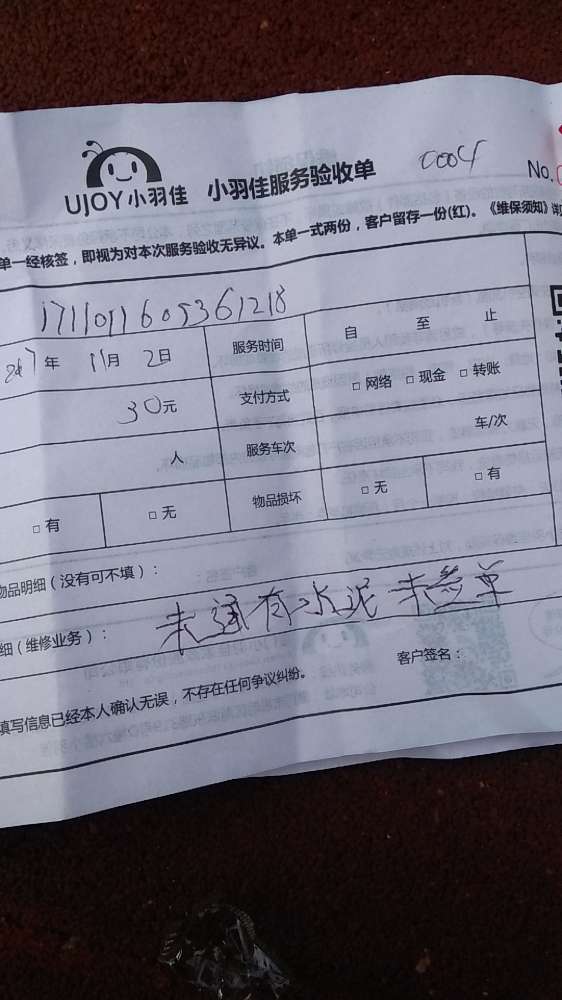 UJOY小羽佳 小羽佳服务验收单 0004 No.
单一经核签，即视为对本次服务验收无异议。本单一式两份，客户留存一份(红)。《维保须知》详
1711011605361218
2017年 11月 2日 服务时间 自 至 止
30元 支付方式 □ 网络 □ 现金 □ 转账
人 服务车次 车/次
□ 有 □ 无 物品损坏 □ 无 □ 有
物品明细（没有可不填）：
细（维修业务）： 未通有水泥 未签单
填写信息已经本人确认无误，不存在任何争议纠纷。 客户签名：